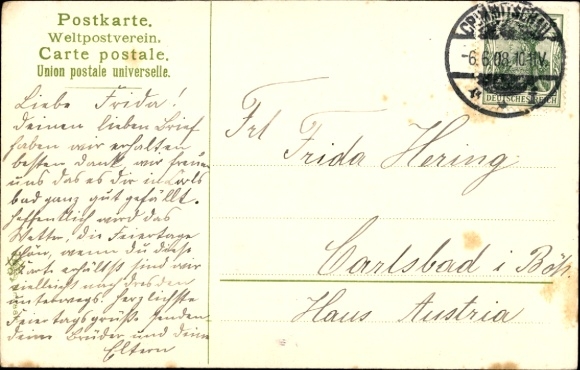 Postkarte.
Weltpostverein.
Carte postale.
Union postale universelle.
CRIMMITSCHAU
-6.6.08.10-11V.
DEUTSCHES REICH
Liebe Frida!
Deinen lieben Brief
haben wir erhalten
besten Dank, wir freuen
uns das es dir in Carls
bad ganz gut gefällt.
hoffentlich wird das
Wetter, die Feiertage
schön, wenn du diese
Karte erhältst sind wir
vielleicht nach Dresden
unterwegs. Herzlichste
Feiertagsgrüße senden
deine Brüder und deine
Eltern
Frl
Frida Hering
Carlsbad i Böh.
Haus Austria